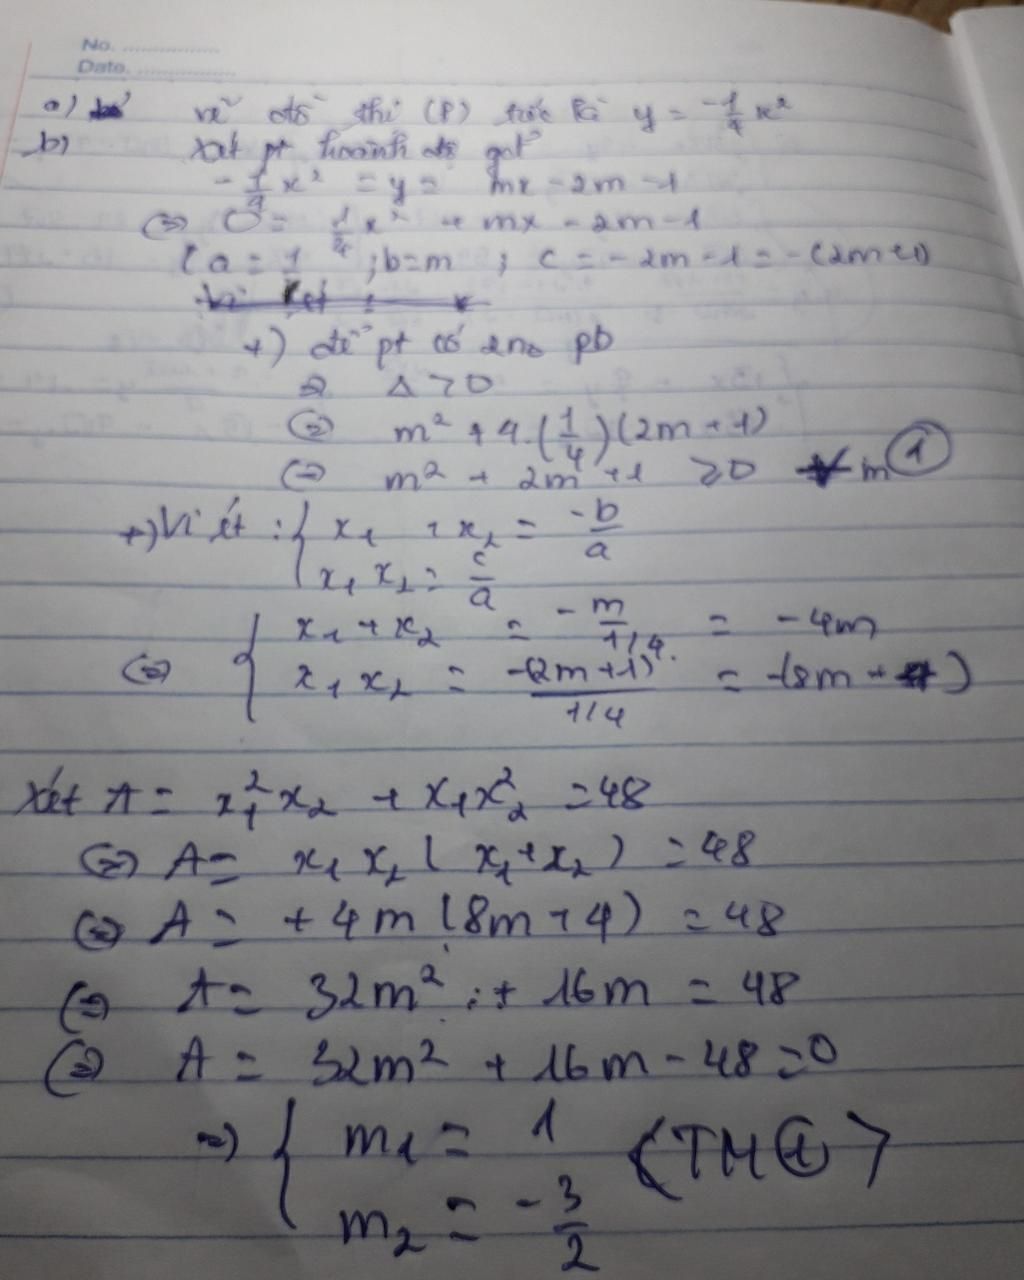 No. ....................
Date. ....................
a) vẽ đồ thị (P) y = -1/4 x²
b) Xét pt hoành độ gđ
- 1/4 x² = y = mx - 2m - 1
(=) 0 = 1/4 x² + mx - 2m - 1
(a = 1/4 ; b = m ; c = - 2m - 1 = - (2m + 1)
+) để pt có 2no pb
Δ > 0
(=) m² + 4.(1/4)(2m + 1)
(=) m² + 2m + 1 ≥ 0 ∀ m (1)
+) Vi ét : { x₁ + x₂ = -b/a
x₁ x₂ = c/a
(=) { x₁ + x₂ = - m/1/4 = - 4m
x₁ x₂ = -(2m + 1)/1/4 = -(8m + 4)
Xét A = x₁² x₂ + x₁x₂² = 48
(=) A = x₁ x₂ ( x₁ + x₂ ) = 48
(=) A = + 4m (8m + 4) = 48
(=) A = 32m² + 16m = 48
(=) A = 32m² + 16m - 48 = 0
=) { m₁ = 1 (TM (1))
m₂ = -3/2